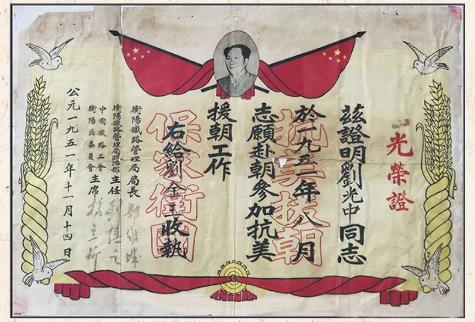 光榮證
茲證明劉光中同志
於一九五一年八月
志願赴朝參加抗美
援朝工作
右給劉光中收執
抗美援朝
保家衛國
衡陽鐵路管理局局長
衡陽鐵路管理局政治部主任
中國鐵路工會
衡陽區委員會主席
公元一九五一年十一月十四日